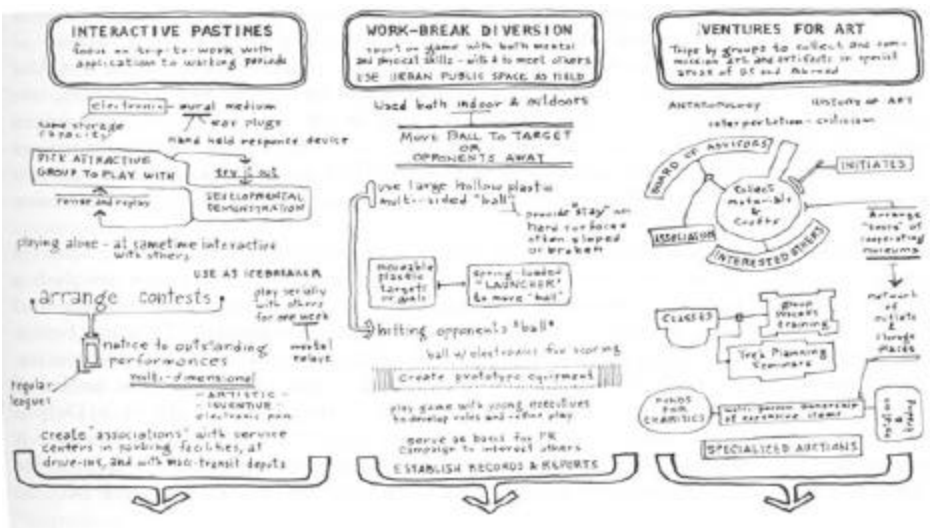 INTERACTIVE PASTIMES
focus on trip-to-work with
application to working periods
electronic - aural medium
ear plugs
some storage
capacity
hand held response device
PICK ATTRACTIVE
GROUP TO PLAY WITH
try it out
DEVELOPMENTAL
DEMONSTRATION
revise and replay
playing alone - at same time interactive
with others
USE AS ICEBREAKER
arrange contests
play serially
with others
for one week
notice to outstanding
performances
regular
leagues
multi-dimensional
- ARTISTIC -
- INVENTIVE -
electronic
create "associations" with service
centers in parking facilities, at
drive-ins, and with mass-transit depots
WORK-BREAK DIVERSION
sport or game with both mental
and physical skills - with to meet others
USE URBAN PUBLIC SPACE AS FIELD
used both indoor & outdoors
MOVE BALL TO TARGET
OR
OPPONENTS AWAY
use large hollow plastic
multi-sided "ball"
provide "stay" on
hard surfaces
often sloped
or broken
moveable
plastic
targets
or goals
spring-loaded
"LAUNCHER"
to move "ball"
hitting opponents "ball"
ball w/ electronics for scoring
create prototype equipment
play game with young executives
to develop rules and refine play
serve as basis for PR
campaign to interest others
ESTABLISH RECORDS & REPORTS
VENTURES FOR ART
Trips by groups to collect and com-
mission art and artifacts in special
areas of US and Abroad
ANTHROPOLOGY
HISTORY OF ART
interpretation - criticism
BOARD OF ADVISORS
INITIATES
Collect
materials
&
Crafts
ASSOCIATION
INTERESTED OTHERS
Arrange
"tours" of
cooperating
museums
CLASSES
Group
Process
training
Trek Planning
Seminars
network
of
outlets
&
storage
places
FUNDS
FOR
CHARITIES
multi-person ownership
of expensive items
SPECIALIZED AUCTIONS